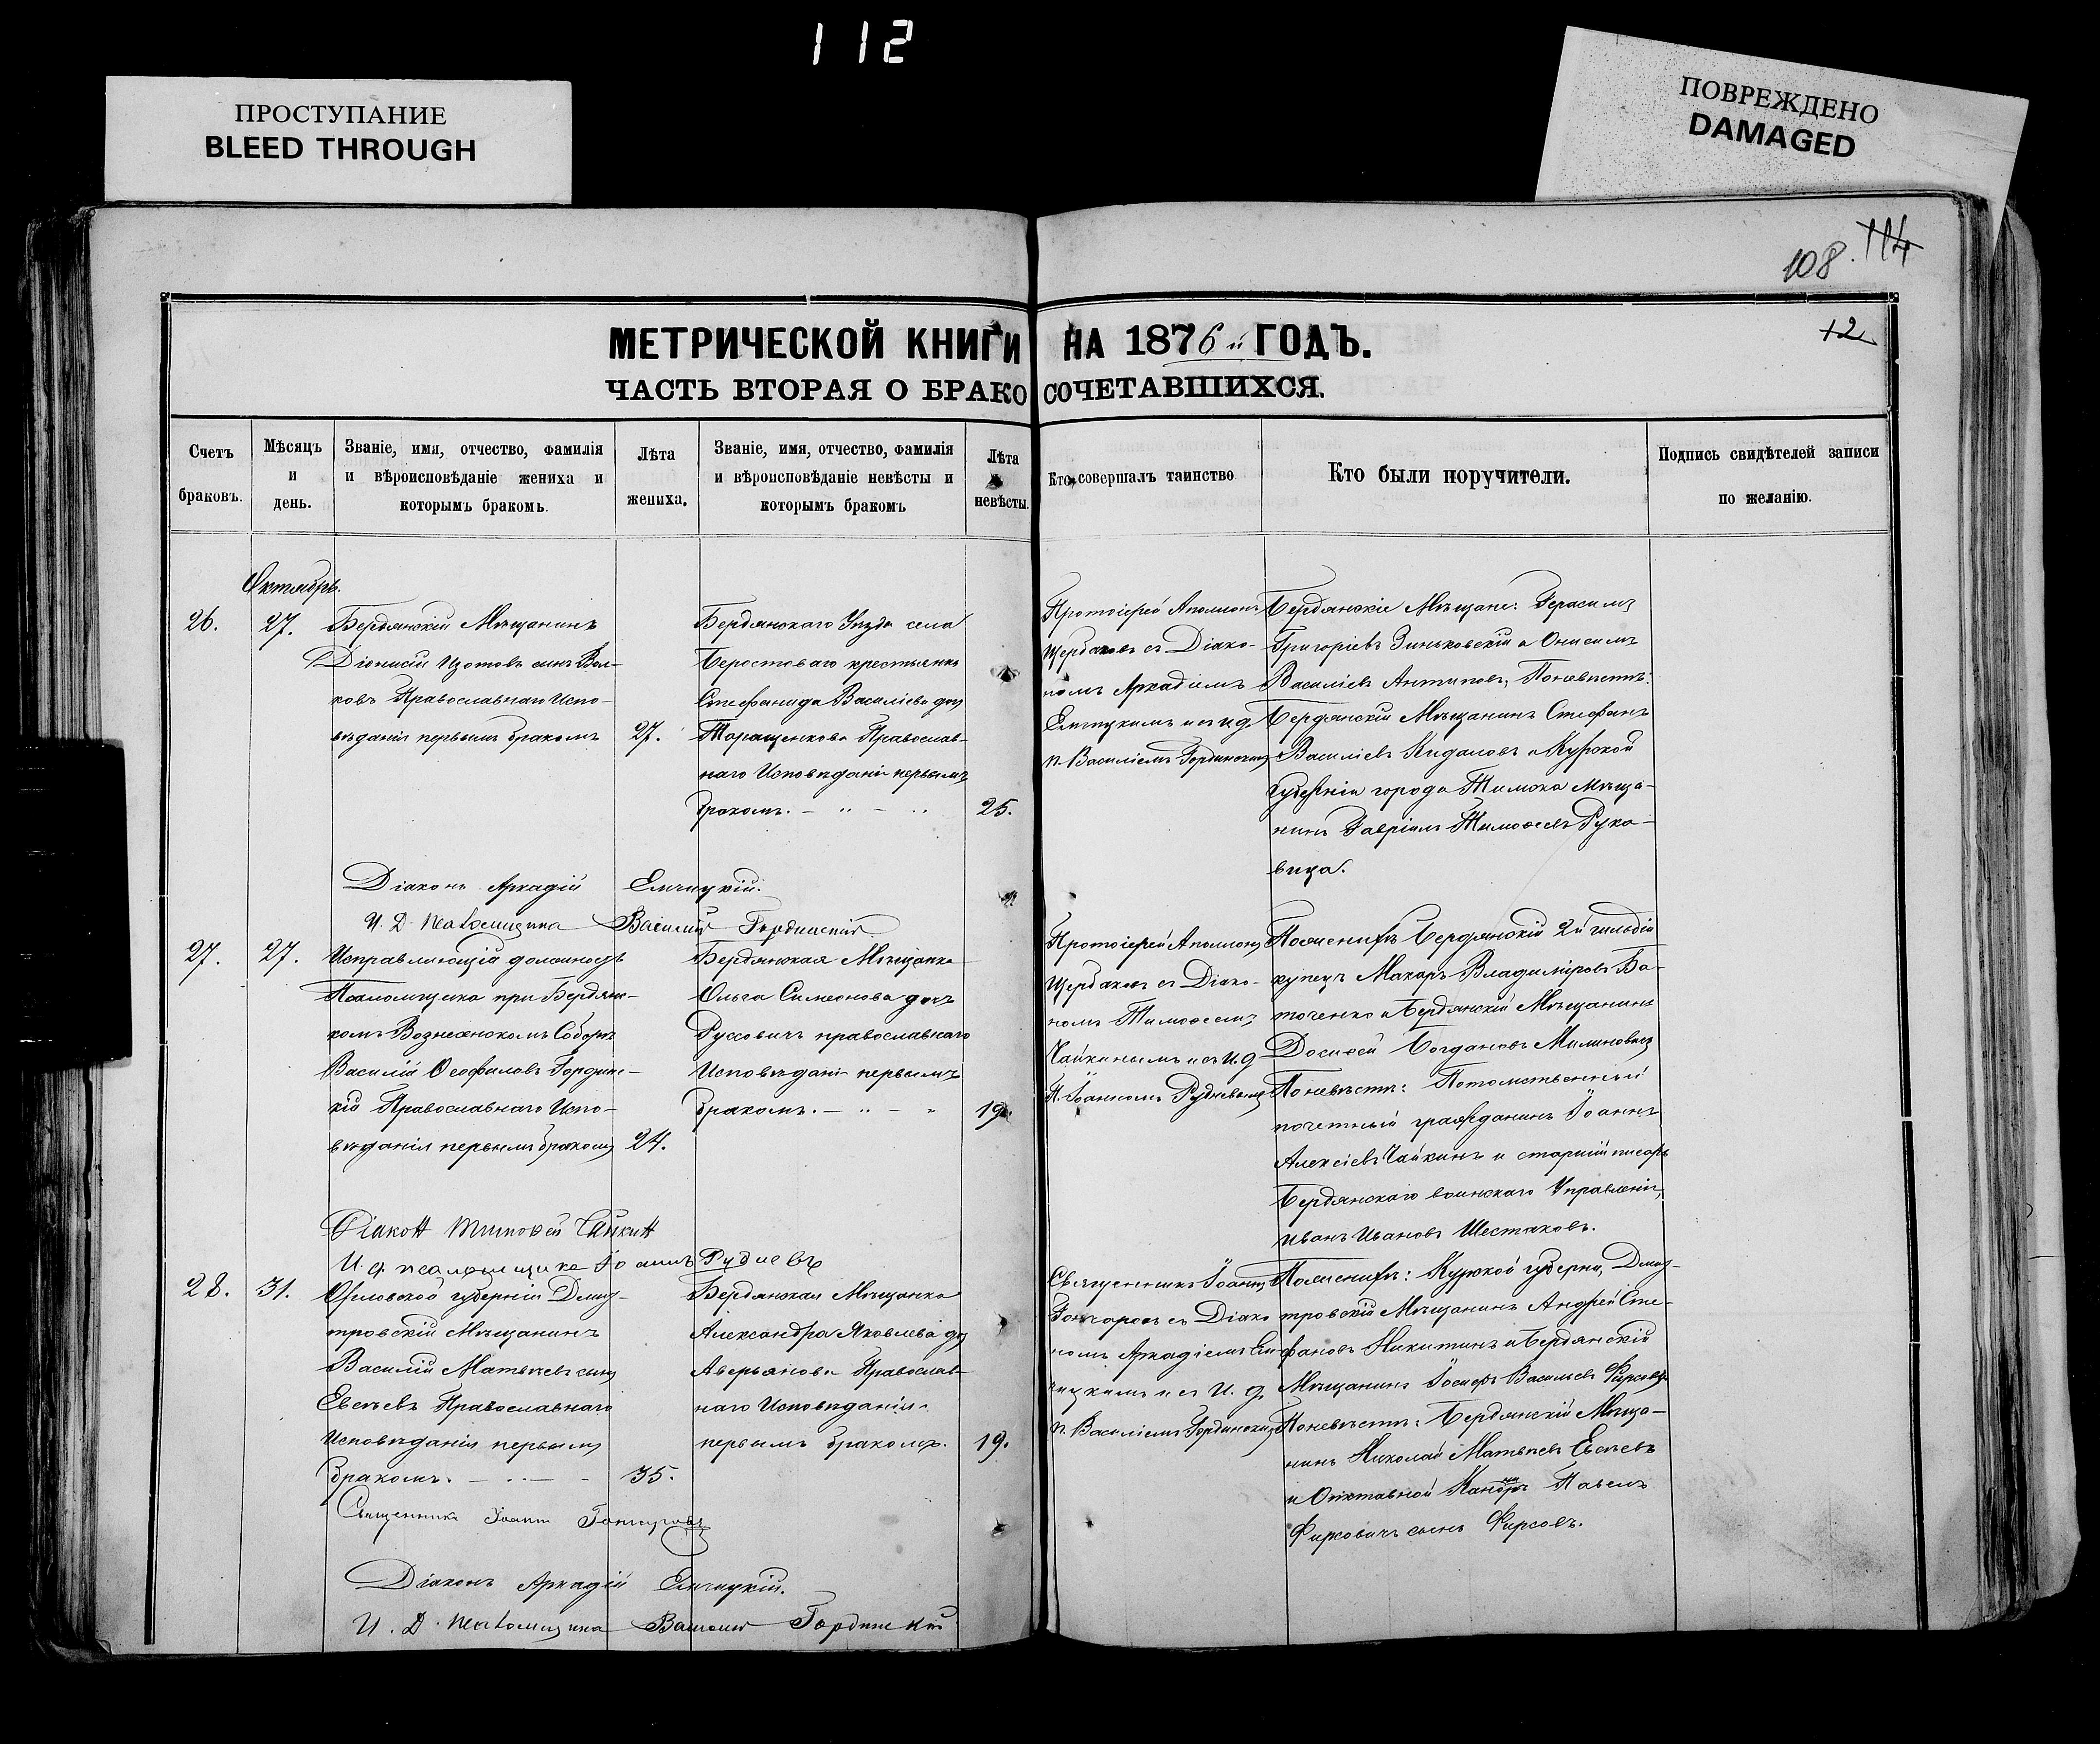 112
ПРОСТУПАНИЕ
BLEED THROUGH
ПОВРЕЖДЕНО
DAMAGED
108. 114
12
МЕТРИЧЕСКОЙ КНИГИ НА 1876 й ГОДЪ.
ЧАСТЬ ВТОРАЯ О БРАКОСОЧЕТАВШИХСЯ.
Счетъ
браковъ.
Мѣсяцъ
и
день.
Званіе, имя, отчество, фамилія
и вѣроисповѣданіе жениха и
которымъ бракомъ.
Лѣта
жениха.
Званіе, имя, отчество, фамилія
и вѣроисповѣданіе невѣсты и
которымъ бракомъ
Лѣта
невѣсты.
Кто совершалъ таинство
Кто были поручители.
Подпись свидѣтелей записи
по желанію.
Октябрь.
26.
27.
Бердянскій Мѣщанинъ
Діонисій Изотовъ сынъ Вол-
ковъ Православнаго Испо-
вѣданія первымъ бракомъ
27.
Бердянскаго Уѣзда села
Берестоваго крестьянка
Стефанида Васильева доч
Таращенкова Православ-
наго Исповѣданія первымъ
бракомъ.
25.
Протоіерей Аполлонъ
Щербаковъ съ Діако-
номъ Аркадіемъ
Елчицкимъ и съ и.д
п. Василіемъ Гординскимъ
Бердянскіе Мѣщане: Герасимъ
Григоріевъ Зиньковскій и Онисимъ
Василіевъ Антиповъ, По невѣстѣ:
Бердянскій Мѣщанинъ Стефанъ
Василіевъ Кидаловъ и Курской
губерніи города Тима Мѣща-
нинъ Гавріилъ Тимофеевъ Рука-
вица.
Діаконъ Аркадій Елчицкій.
И. Д. Псаломщика Василій Гординскій
27.
27.
Исправляющій должность
Псаломщика при Бердянс-
комъ Вознесенскомъ Соборѣ
Василій Феофиловъ Гординс-
кій Православнаго Испо-
вѣданія первымъ бракомъ
24.
Бердянская Мѣщанка
Ольга Симеонова доч
Руссовичъ православнаго
Исповѣданія первымъ
бракомъ.
19.
Протоіерей Аполлонъ
Щербаковъ съ Діако-
номъ Тимофеемъ
Чайкинымъ и съ и.д
П. Іоанномъ Рудневымъ
По женихѣ Бердянскій 2й гильдіи
купецъ Макаръ Владиміровъ Ба-
точенко и Бердянскій Мѣщанинъ
Досифей Богдановъ Милиновичъ
По невѣстѣ: Потомственный
почетный гражданинъ Іоаннъ
Алексіевъ Чайкинъ и старшій писарь
Бердянскаго воинскаго Управленія,
Иванъ Ивановъ Шестаковъ.
Діаконъ Тимофей Чайкинъ
И. д. псаломщика Іоаннъ Рудневъ
28.
31.
Орловской губерніи Дмит-
тровскій Мѣщанинъ
Василій Матвѣевъ сынъ
Евсѣевъ Православнаго
Исповѣданія первымъ
бракомъ.
35.
Бердянская Мѣщанка
Александра Яковлева доч
Аверьянова Православ-
наго Исповѣданія
первымъ бракомъ.
19.
Священникъ Іоаннъ
Гончаровъ съ Діако
номъ Аркадіемъ Ел-
чицкимъ и съ И. д.
п. Василіемъ Гординскимъ
По женихѣ: Курской губерніи, Дмит-
тровскій Мѣщанинъ Андрей Сте-
фановъ Никитинъ и Бердянскій
Мѣщанинъ Іосифъ Васильевъ Фирсовъ
По невѣстѣ: Бердянскій Мѣща-
нинъ Николай Матвѣевъ Евсѣевъ
и Отставной Павелъ
Фирсовъ.
Священникъ Іоаннъ Гончаровъ
Діаконъ Аркадій Елчицкій.
И. Д. Псаломщика Василій Гординскій